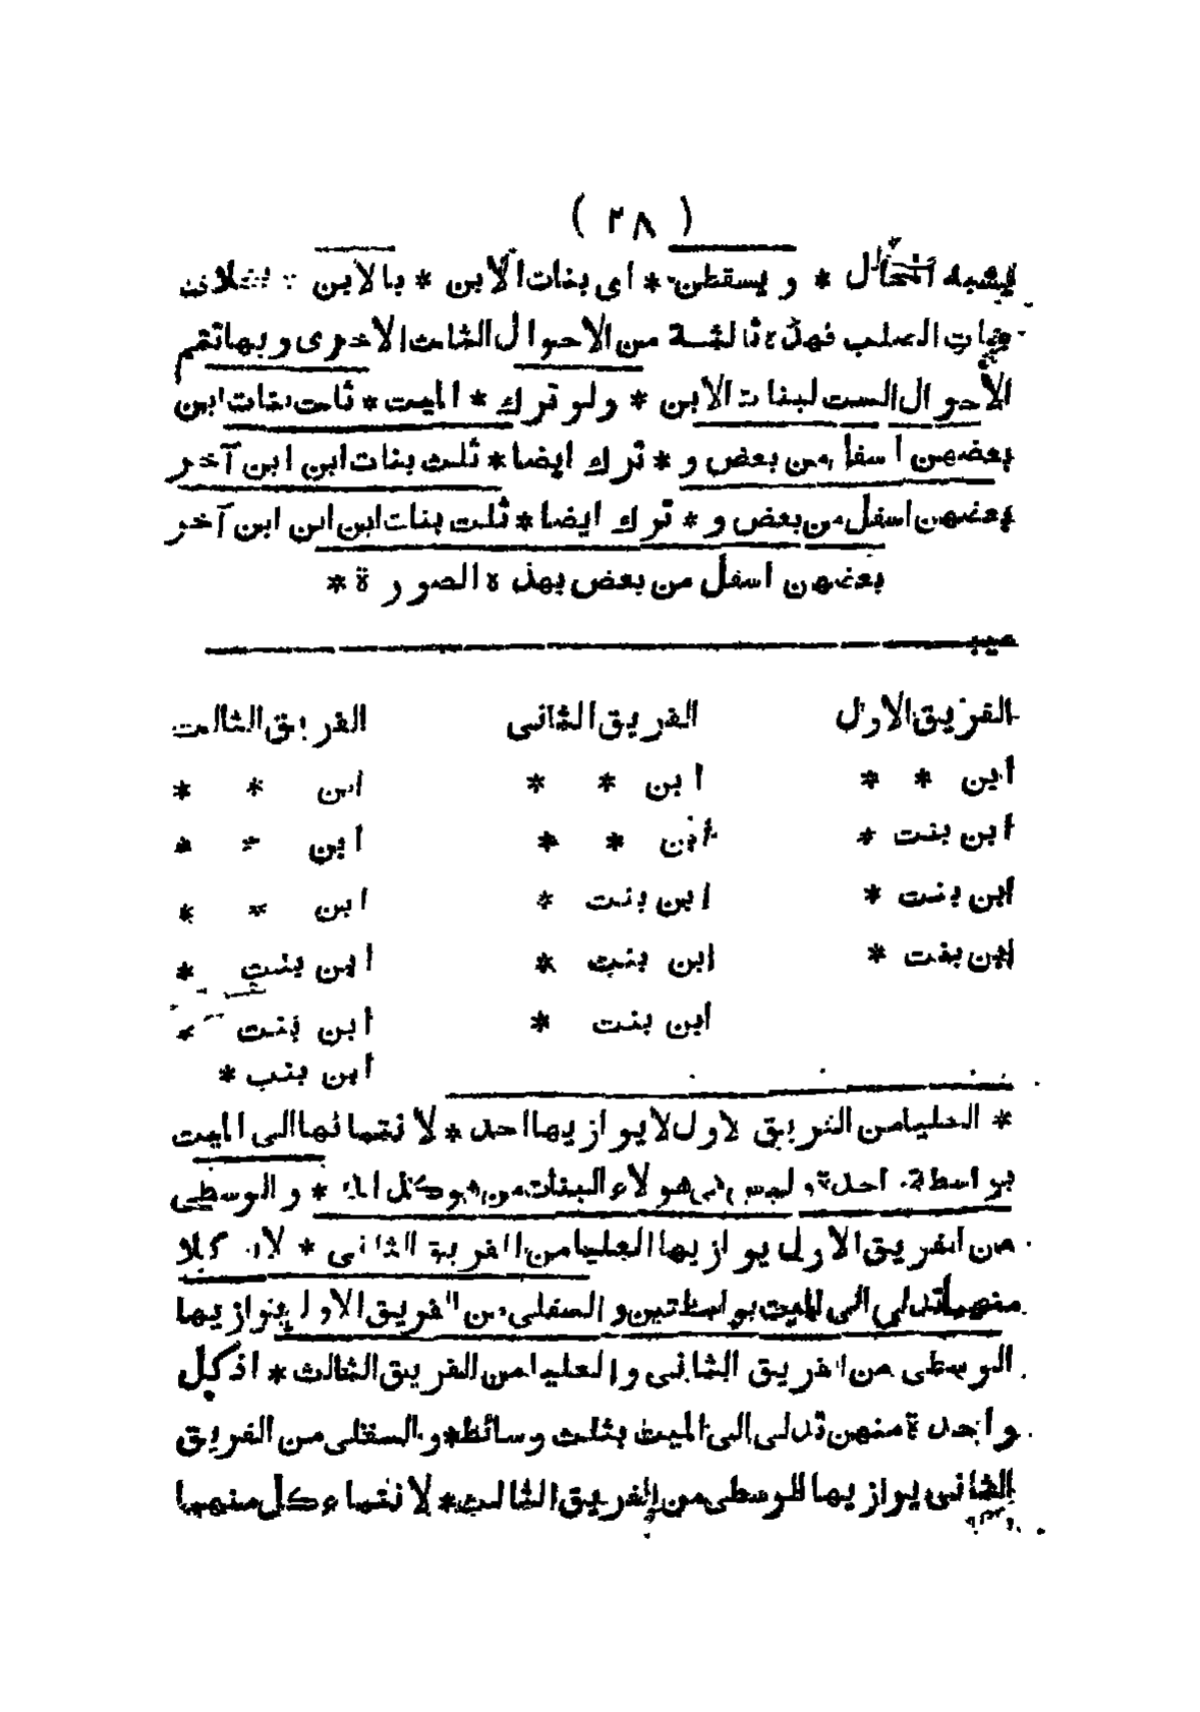 ( ٢٨ )
يشبه الحال * و يسقطن * اى بنات الابن * بالابن * بخلاف
بنات الصلب فهذه ثالثة من الاحوال الثلث الاخرى و بها تتم
الاحوال الست لبنات الابن * ولو ترك * الميت * ثلث بنات ابن
بعضهن اسفل من بعض و * ترك ايضا * ثلث بنات ابن ابن آخر
بعضهن اسفل من بعض و * ترك ايضا * ثلث بنات ابن ابن ابن آخر
بعضهن اسفل من بعض بهذه الصورة *
ميت
الفريق الاول    الفريق الثانى    الفريق الثالث
ابن * *    ابن * *    ابن * *
ابن بنت *    ابن * *    ابن * *
ابن بنت *    ابن بنت *    ابن * *
ابن بنت *    ابن بنت *    ابن بنت *
ابن بنت *    ابن بنت *
ابن بنت *
* العليا من الفريق الاول لا يوازيها احد * لانتمائها الى الميت
بواسطة واحدة وليس فى هولاء البنات من هو كذلك * والوسطى
من الفريق الاول يوازيها العليا من الفريق الثانى * لان كلا
منهما تدلى الى الميت بواسطتين و السفلى من الفريق الاول يوازيها
الوسطى من الفريق الثانى والعليا من الفريق الثالث * اذ كل
واحدة منهن تدلى الى الميت بثلث وسائط * و السفلى من الفريق
الثانى يوازيها الوسطى من الفريق الثالث * لانتماء كل منهما